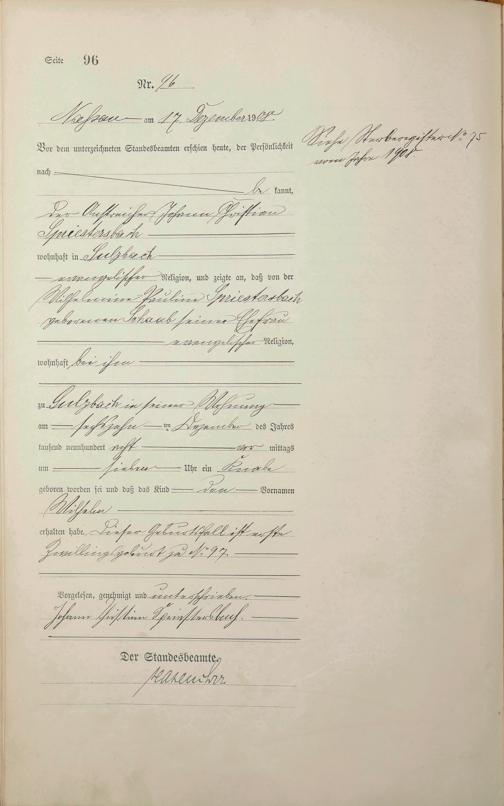 Seite 96
Nr. 96
am 17 Dezember 1908
Siehe Sterberegister No 75
vom Jahre 1908
Vor dem unterzeichneten Standesbeamten erschien heute, der Persönlichkeit
nach
be kannt,
der Anstreicher Johann Christian
Spriestersbach
wohnhaft in Sulzbach
evangelischer Religion, und zeigte an, daß von der
Wilhelmine Pauline Spriestersbach
geborenen Schaub seiner Ehefrau
evangelischer Religion,
wohnhaft bei ihm
zu Sulzbach in seiner Wohnung
am sechszehn ten Dezember des Jahres
tausend neunhundert acht vor mittags
um sieben Uhr ein Knabe
geboren worden sei und daß das Kind den Vornamen
Wilhelm
erhalten habe. Dieser Geburtsfall ist erste
Zwillingsgeburt zu No 97.
Vorgelesen, genehmigt und unterschrieben.
Johann Christian Spriestersbach.
Der Standesbeamte.